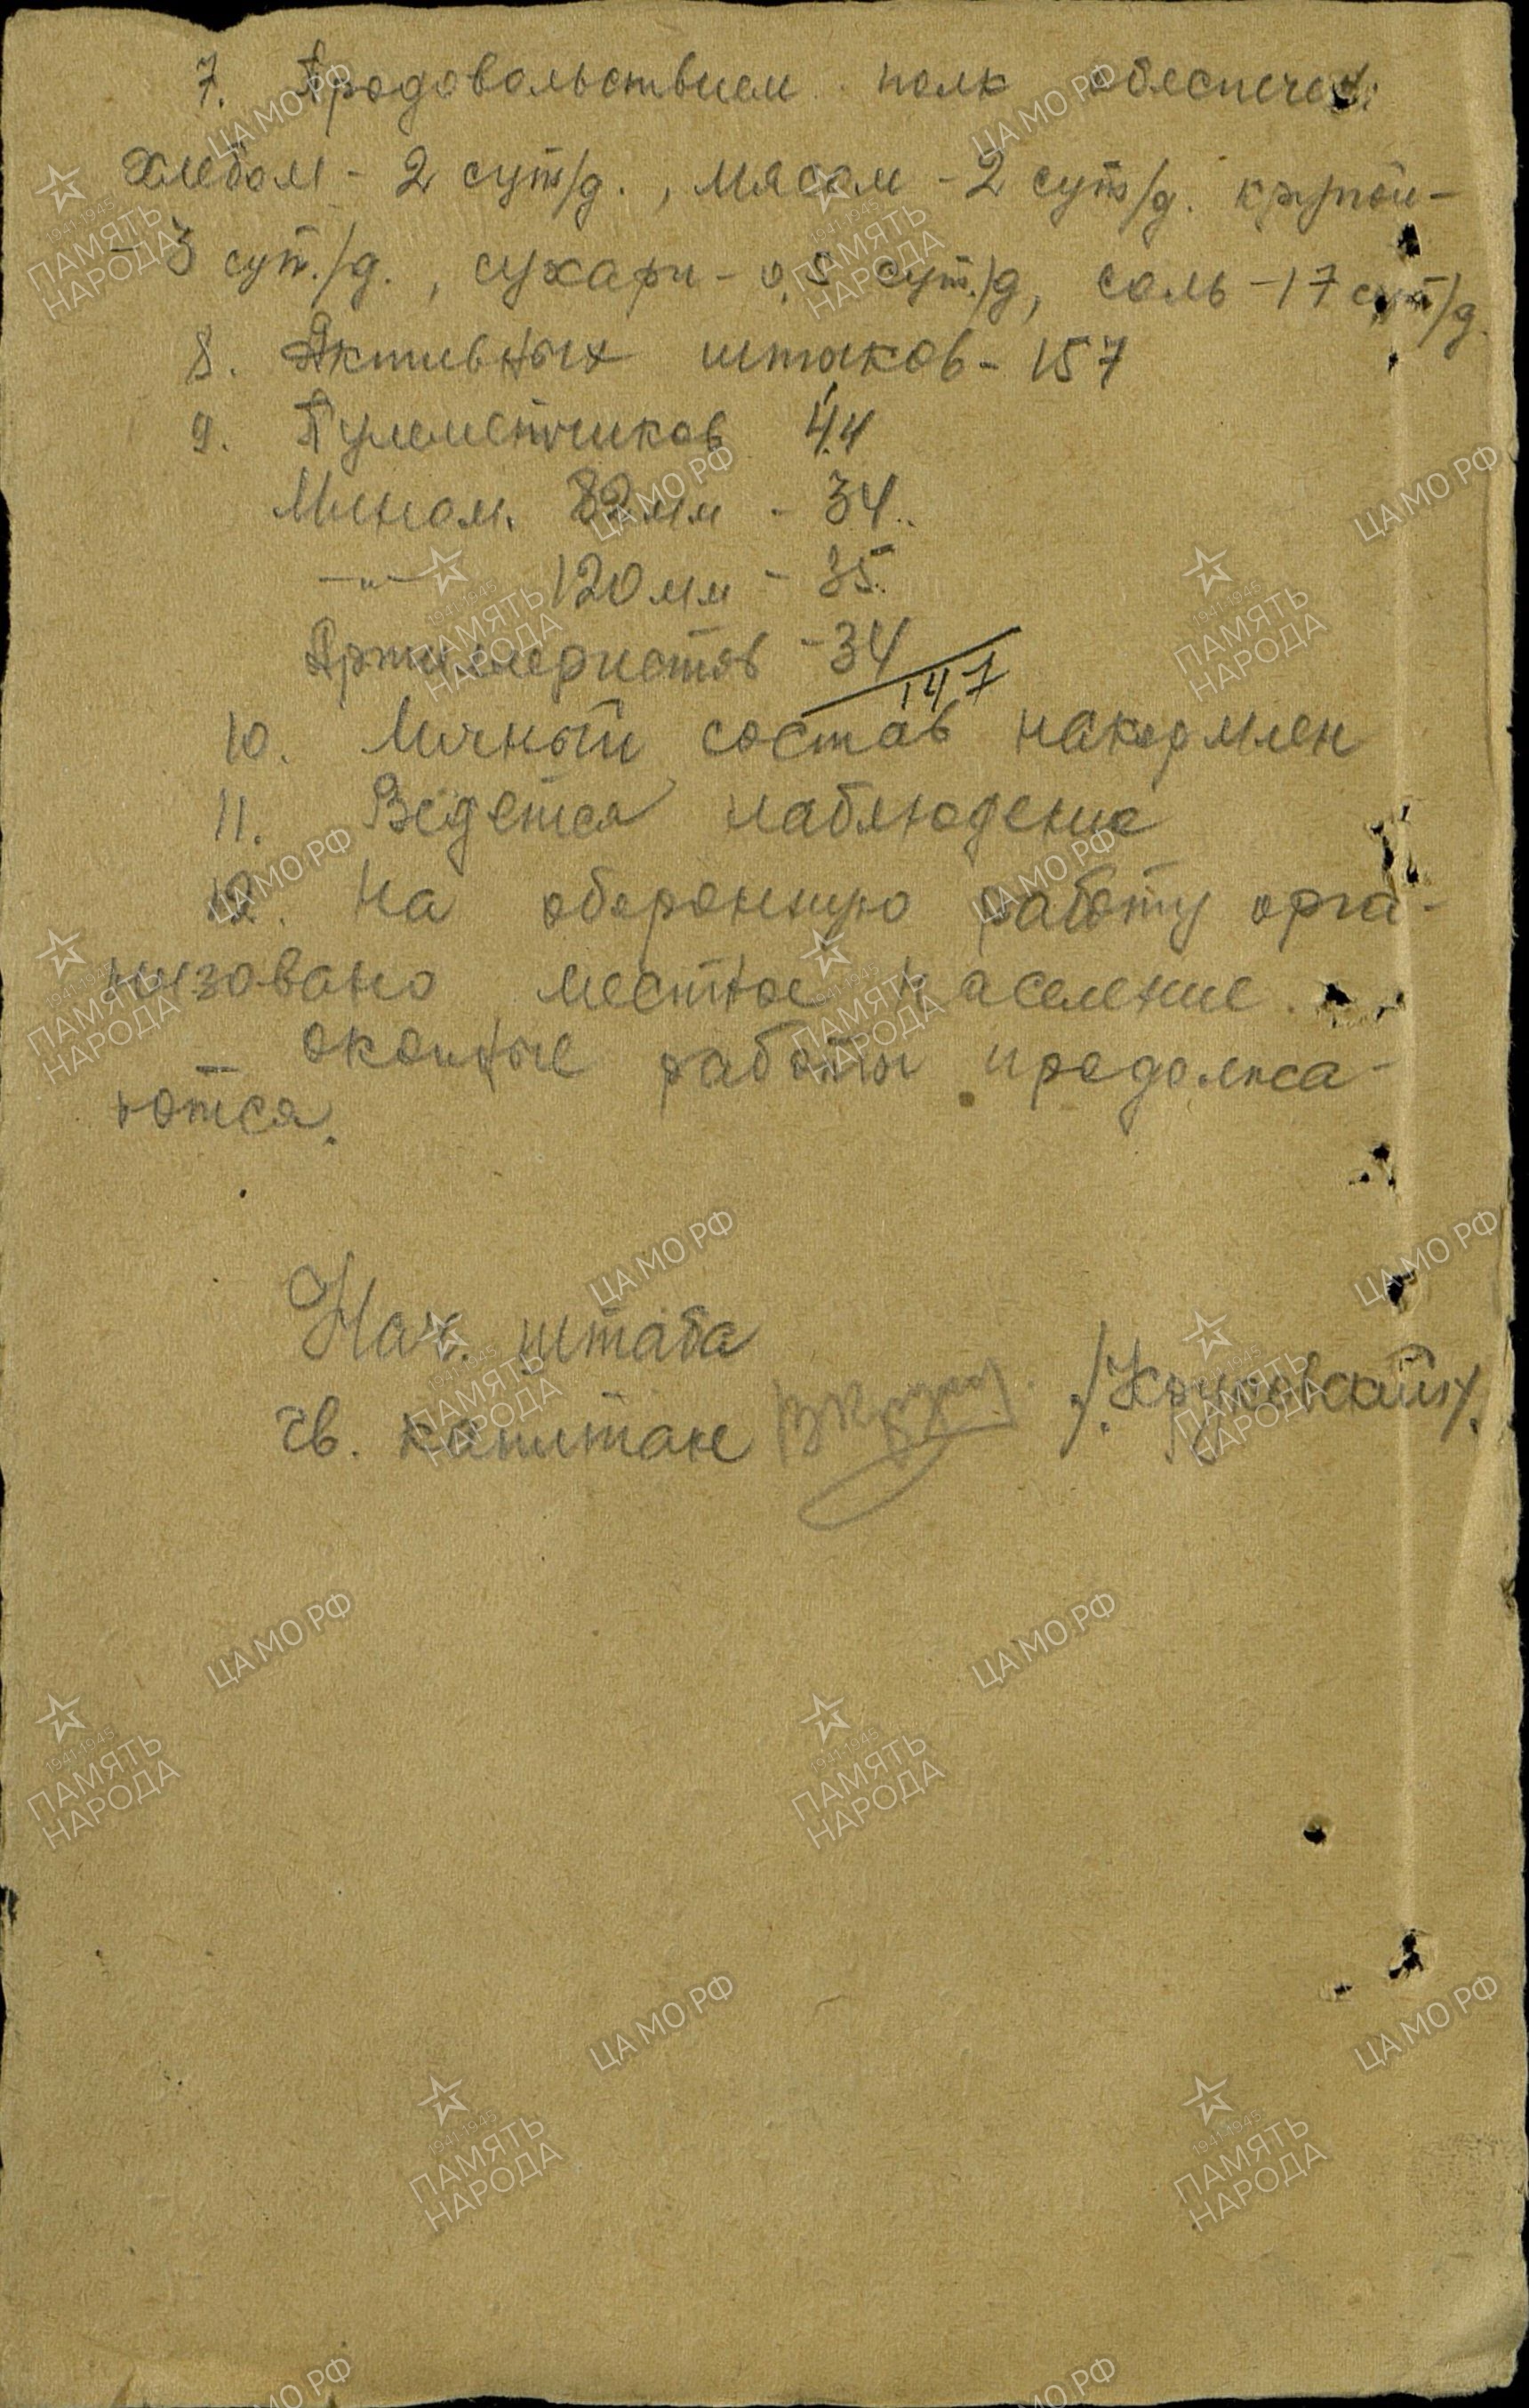 7. Продовольствием полк обеспечен:
хлебом - 2 сут/д., мясом - 2 сут/д. крупой -
- 3 сут./д., сухари - 0,5 сут./д, соль - 17 сут/д.
8. Активных штыков - 157
9. Пулеметчиков 44
Мином. 82 мм - 34.
—"— 120 мм - 35.
Артиллеристов - 34
147
10. Личный состав накормлен
11. Ведется наблюдение
12. На оборонную работу орга-
низовано местное население.
Окопные работы продолжа-
ются.
Нач. штаба
гв. капитан /Круковский/.